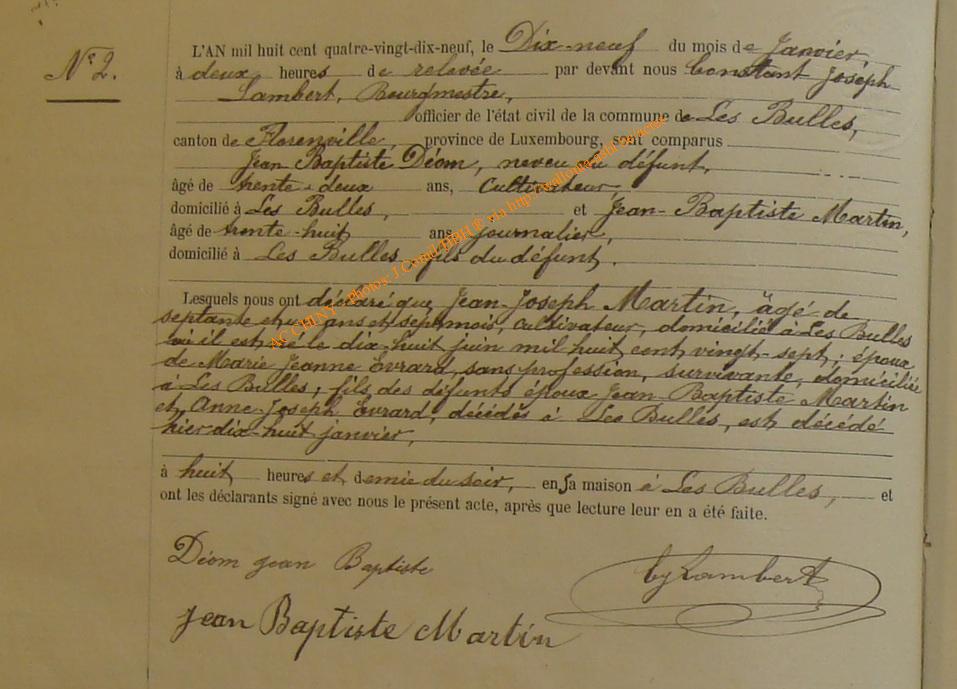 N° 2.
L'AN mil huit cent quatre-vingt-dix-neuf, le Dix-neuf du mois de Janvier,
à deux heures de relevée par devant nous Constant Joseph
Lambert, Bourgmestre,
officier de l'état civil de la commune de Les Bulles,
canton de Florenville, province de Luxembourg, sont comparus
Jean Baptiste Déom, neveu du défunt,
âgé de trente-deux ans, cultivateur,
domicilié à Les Bulles, et Jean-Baptiste Martin,
âgé de trente-huit ans journalier,
domicilié à Les Bulles, fils du défunt.
Lesquels nous ont déclaré que Jean-Joseph Martin, âgé de
septante et un ans et sept mois, cultivateur, domicilié à Les Bulles
où il est né le dix-huit juin mil huit cent vingt-sept; époux
de Marie Jeanne Evrard, sans profession, survivante, domiciliée
à Les Bulles; fils des défunts époux Jean-Baptiste Martin
et Anne-Joseph Evrard, décédés à Les Bulles, est décédé
hier dix-huit janvier,
à huit heures et demie du soir, en sa maison à Les Bulles, et
ont les déclarants signé avec nous le présent acte, après que lecture leur en a été faite.
Déom jean Baptiste
CjLambert
Jean Baptiste Martin
ACCHINY photos J Cond HBH® via http://wallonica